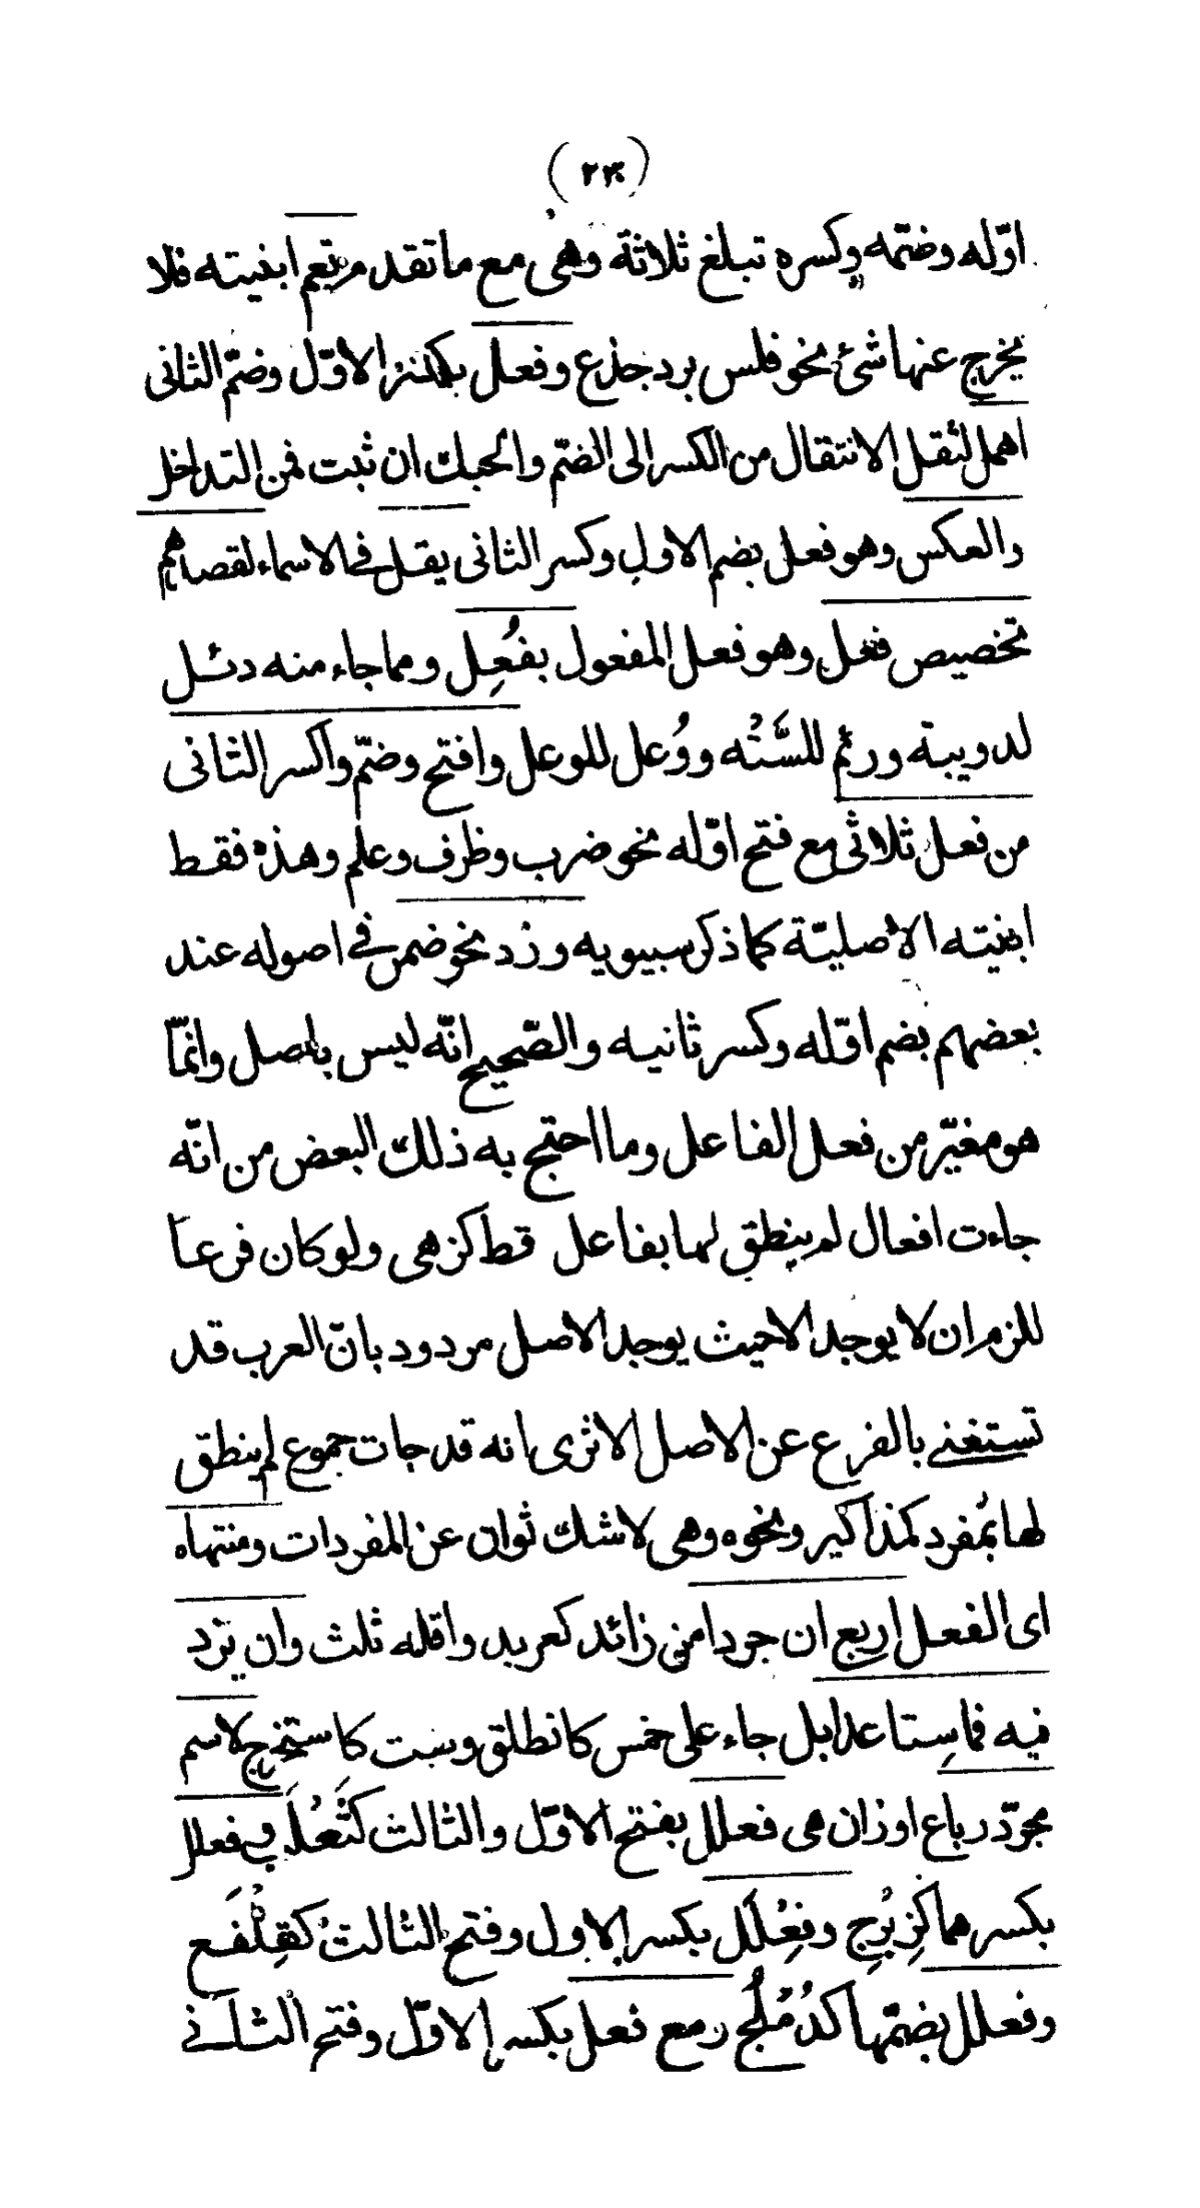 (٢٣٠)
اوّله وضمّه وكسره تبلغ ثلاثة وهى مع ما تقدم تعم ابنيته فلا
يخرج عنها شئ نحو فلس برد جذع وفعل بكسر الاوّل وضمّ الثانى
اهمل لثقل الانتقال من الكسر الى الضمّ والحبك ان ثبت فمن التداخل
والعكس وهو فعل بضم الاول وكسر الثانى يقل فى الاسماء لقصدهم
تخصيص فعل وهو فعل المفعول بفُعِل ومما جاء منه دئل
لدويبة ورئم للسَّتُه ووُعل للوعل وافتح وضمّ واكسر الثانى
من فعل ثلاثى مع فتح اوّله نحو ضرب وظرف وعلم وهذه فقط
ابنيته الاصليّة كما ذكر سيبويه وزد نحو ضمن فى اصوله عند
بعضهم بضم اوّله وكسر ثانيه والصّحيح انّه ليس باصل وانّمّا
هو مغيّر من فعل الفاعل وما احتج به ذلك البعض من انّه
جاءت افعال لم ينطق لها بفاعل قط كزهى ولو كان فرعا
للزم ان لا يوجد الا حيث يوجد الاصل مردود بانّ العرب قد
تستغنى بالفرع عن الاصل الا ترى انه قد جات جموع لم ينطق
لها بمُفرد كمذاكير ونحوه وهى لا شك ثوان عن المفردات ومنتهاه
اى الفعل اربع ان جردا من زائد كعربد واقله ثلث وان يزد
فيه فما سِتا عدا بل جاء على خمس كانطلق وست كاستخرج لاسم
مجرّد رباع اوزان هى فعلل بفتح الاوّل والثالث كثَعْلَب وفعلل
بكسرهما كزِبْرِج وفِعْلَل بكسر الاول وفتح الثالث كقِلْفَع
وفعلل بضمّهما كدُمْلُج ومع فعل بكسر الاوّل وفتح الثانى